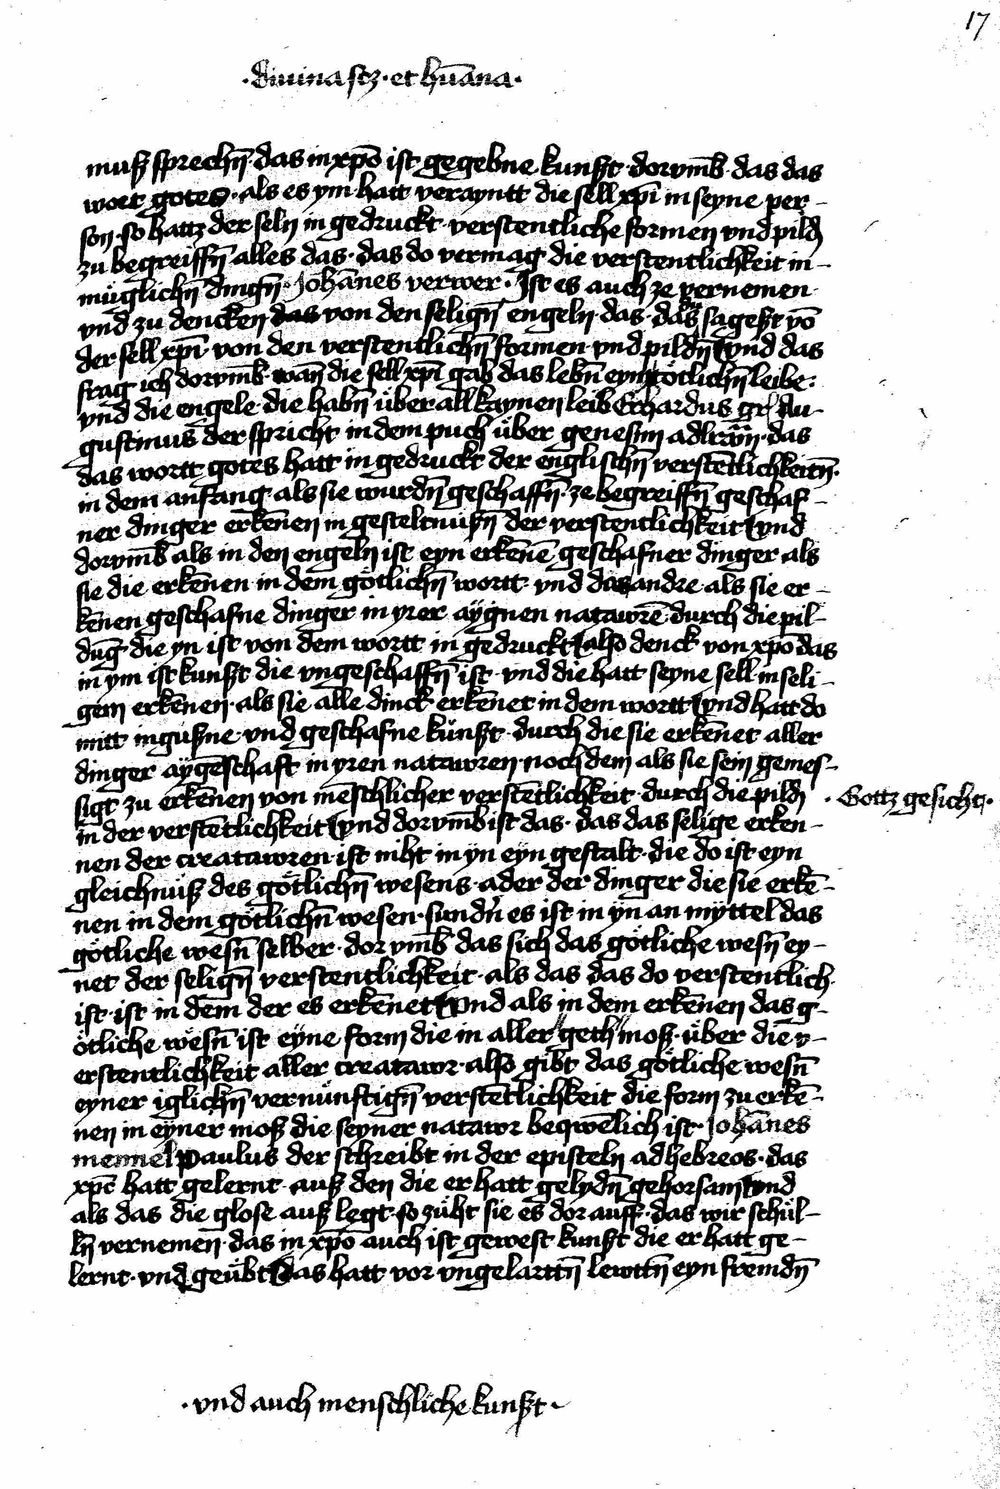 17
·diuina scz· et hūana·
muß sprechn̄· das in xp̄o ist gegebne kunst· dorvmb̄· das das
wort gotes· als es ym hatt verayntt die sell xp̄i in seyne per-
son· so hattz der seln in gedruckt· verstentliche formen vnd pild
zu begreiffn̄ alles das· das do vermag die verstentlichkeit in-
müglichn̄ dingn̄· Johānes verwer· Ist es auch ze vernemen
vnd zu dencken das von den selign̄ engeln· das· das du sagest vō
der sell xp̄i· von den verstentlichn̄ formen· vnd pildn̄ vnd das
frag ich dorvmb̄· wān die sell xp̄i gab das lebn̄ eym tötlichn̄ leibe:
vnd die engele· die habn̄ über all kaynen leib Erhardus gr̄ Au-
gustinus der spricht in dem puch über genesim ad lr̄am· das
das wortt gotes hatt in gedruckt der englischn̄ verstētlichkeitn̄·
in dem anfang als sie wurdn̄ geschaffn̄· ze begreiffn̄ geschaf-
ner dinger erkēnen in gesteltnüßn̄ der verstentlichkeit vnd
dorvmb̄ als in den engeln ist eyn erkēnē geschafner dinger als
sie die erkēnen in dem götlichn̄ wortt· vnd das andre als sie er-
kēnen geschafne dinger in yrer aygnen natawrē durch die pil-
dūg die yn ist von dem wortt in gedruckt also denck von xp̄o das
in ym ist kunst die vngeschaffn̄ ist· vnd die hatt seyne sell in seli-
gem erkēnen· als sie alle dinck erkēnet in dem wortt vnd hatt do
mitt ingußne vnd geschafne künst· durch die sie erkēnet aller
dinger aygēschaft in yren natawren· noch dem als sie sein gemes-
sigt zu erkēnen von mēschlicher verstētlichkeit· durch die pild
·Gottz gesicht·
in der verstētlichkeit vnd dorvmb̄ ist das· das das selige erken-
nen der creatawren· ist niht in yn eyn gestalt· die do ist eyn
gleichnüß des götlichn̄ wesens· ader der dinger die sie erkē-
nen in dem götlichn̄ wesen· sundn̄ es ist in yn an myttel das
götliche wesn̄ selber· dor vmb̄ das sich das götliche wesn̄ ey-
net der selign̄ verstentlichkeit· als das das do verstentlich
ist· ist in dem der es erkēnet vnd als in dem erkēnen das g-
ötliche wesn̄ ist eyne form die in aller moß· über die v-
erstentlichkeit aller creatawr· also gibt das götliche wesn̄
eyner iglichn̄ vernünftign̄ verstētlichkeit die form zu erkē-
nen in eyner moß die seyner natawr beqwēlich ist Johānes
mennel Paulus der schreibt in der episteln ad hebreos· das
xp̄c hatt gelernt· auß den die er hatt gelydn̄ gehorsam vnd
als das die glose auß legt· so züht sie es dor auff· das wir schül-
ln̄ vernemen· das in xp̄o auch ist gewest kunst die er hatt ge-
lernt· vnd geübt Das hatt vor vngelarttn̄ lewttn̄ eyn fremdn̄
·vnd auch menschliche kunst·